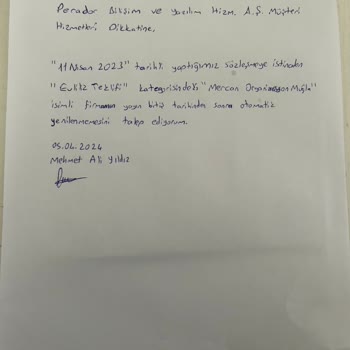 Perador Bilişim ve Yazılım Hizm. A.Ş. Müşteri
Hizmetleri Dikkatine,
"11 Nisan 2023" tarihli yaptığımız sözleşmeye istinaden
"Evlilik Teklifi" kategorisindeki "Mercan Organizasyon Muğla"
isimli firmanın yayın bitiş tarihinden sonra otomatik
yenilenmemesini talep ediyorum.
05.04.2024
Mehmet Ali Yıldız